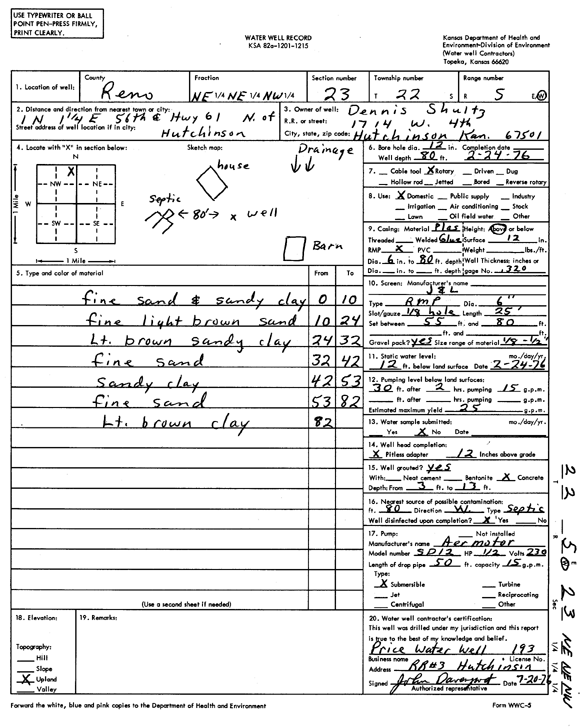 USE TYPEWRITER OR BALL
POINT PEN-PRESS FIRMLY,
PRINT CLEARLY.
WATER WELL RECORD
KSA 82a-1201-1215
Kansas Department of Health and
Environment-Division of Environment
(Water well Contractors)
Topeka, Kansas 66620
1. Location of well:
County
Reno
Fraction
NE 1/4 NE 1/4 NW 1/4
Section number
23
Township number
T 22 S
Range number
R 5 E/W
2. Distance and direction from nearest town or city:
1 N 1 1/4 E 56th & Hwy 61 N. of
Street address of well location if in city:
Hutchinson
3. Owner of well: Dennis Shultz
R.R. or street: 1714 W. 4th
City, state, zip code: Hutchinson Kan. 67501
4. Locate with "X" in section below:
N
X
NW NE
W E
SW SE
S
1 Mile
1 Mile
Sketch map:
house
Drainage
Septic
← 80' → x well
Barn
6. Bore hole dia. 12 in. Completion date
Well depth 80 ft. 2-24-76
7. Cable tool X Rotary Driven Dug
Hollow rod Jetted Bored Reverse rotary
8. Use: X Domestic Public supply Industry
Irrigation Air conditioning Stock
Lawn Oil field water Other
9. Casing: Material Plas Height: Above or below
Threaded Welded Glue Surface 12 in.
RMP X PVC Weight lbs./ft.
Dia. 6 in. to 80 ft. depth Wall Thickness: inches or
Dia. in. to ft. depth gage No. .320
10. Screen: Manufacturer's name
J & L
Type RMP Dia. 6"
Slot/gauze 1/8 hole Length 25'
Set between 55 ft. and 80 ft.
ft. and ft.
Gravel pack? yes Size range of material 1/8-1/2"
11. Static water level: mo./day/yr.
12 ft. below land surface Date 2-24-76
12. Pumping level below land surfaces:
30 ft. after 2 hrs. pumping 15 g.p.m.
ft. after hrs. pumping g.p.m.
Estimated maximum yield 25 g.p.m.
13. Water sample submitted: mo./day/yr.
Yes X No Date
14. Well head completion:
X Pitless adapter 12 Inches above grade
15. Well grouted? yes
With: Neat cement Bentonite X Concrete
Depth: From 3 ft. to 13 ft.
16. Nearest source of possible contamination:
ft. 80 Direction W. Type Septic
Well disinfected upon completion? X Yes No
17. Pump: Not installed
Manufacturer's name Aermotor
Model number SD12 HP 1/2 Volts 230
Length of drop pipe 50 ft. capacity 15 g.p.m.
Type:
X Submersible Turbine
Jet Reciprocating
Centrifugal Other
5. Type and color of material From To
fine sand & sandy clay 0 10
fine light brown sand 10 24
Lt. brown sandy clay 24 32
fine sand 32 42
sandy clay 42 53
fine sand 53 82
Lt. brown clay 82
(Use a second sheet if needed)
18. Elevation:
Topography:
Hill
Slope
X Upland
Valley
19. Remarks:
20. Water well contractor's certification:
This well was drilled under my jurisdiction and this report
is true to the best of my knowledge and belief.
Price Water Well 193
Business name License No.
Address RR#3 Hutchinson
Signed John Davenport Date 7-20-76
Authorized representative
Forward the white, blue and pink copies to the Department of Health and Environment
Form WWC-5
22 T 5 R E W 23 Sec NE NE NW 1/4 1/4 1/4